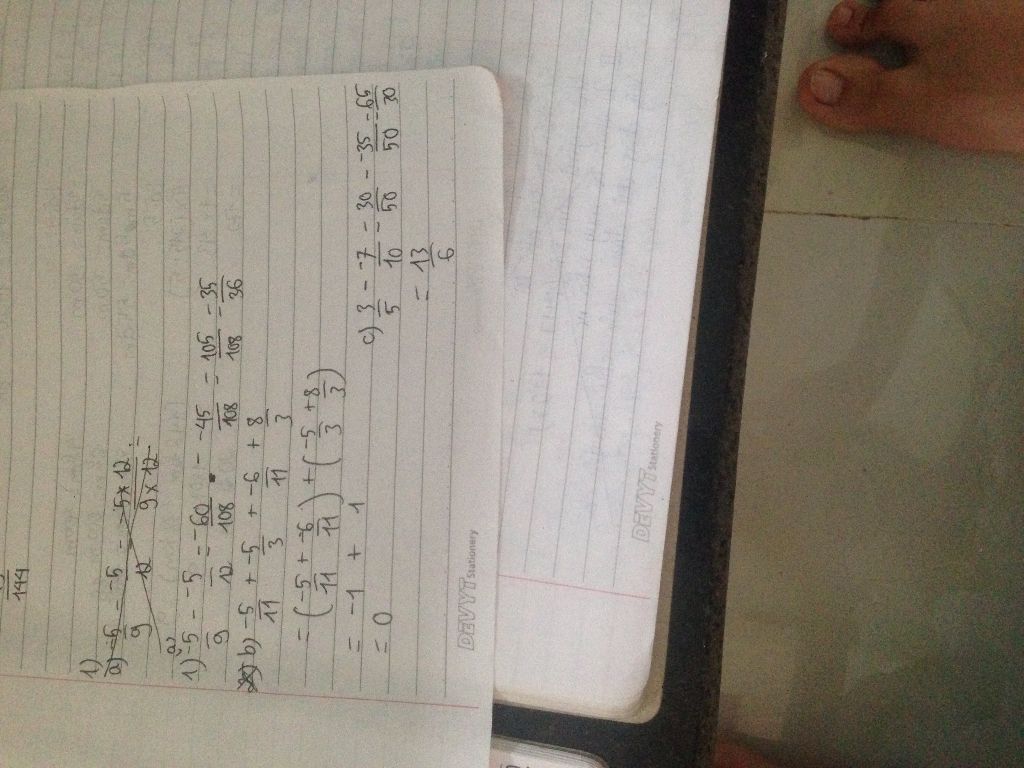 144
1)
a) -5/9 - -5/12 = -5 x 12 / 9 x 12 =
a)
1) -5/9 - -5/12 = -60/108 - -45/108 = -105/108 = -35/36
b) -5/11 + -5/3 + -6/11 + 8/3
= (-5/11 + -6/11) + (-5/3 + 8/3)
= -1 + 1
= 0
c) 3/5 - -7/10 = 30/50 - -35/50 = -65/30
= 13/6
DEVYT Stationery
DEVYT Stationery